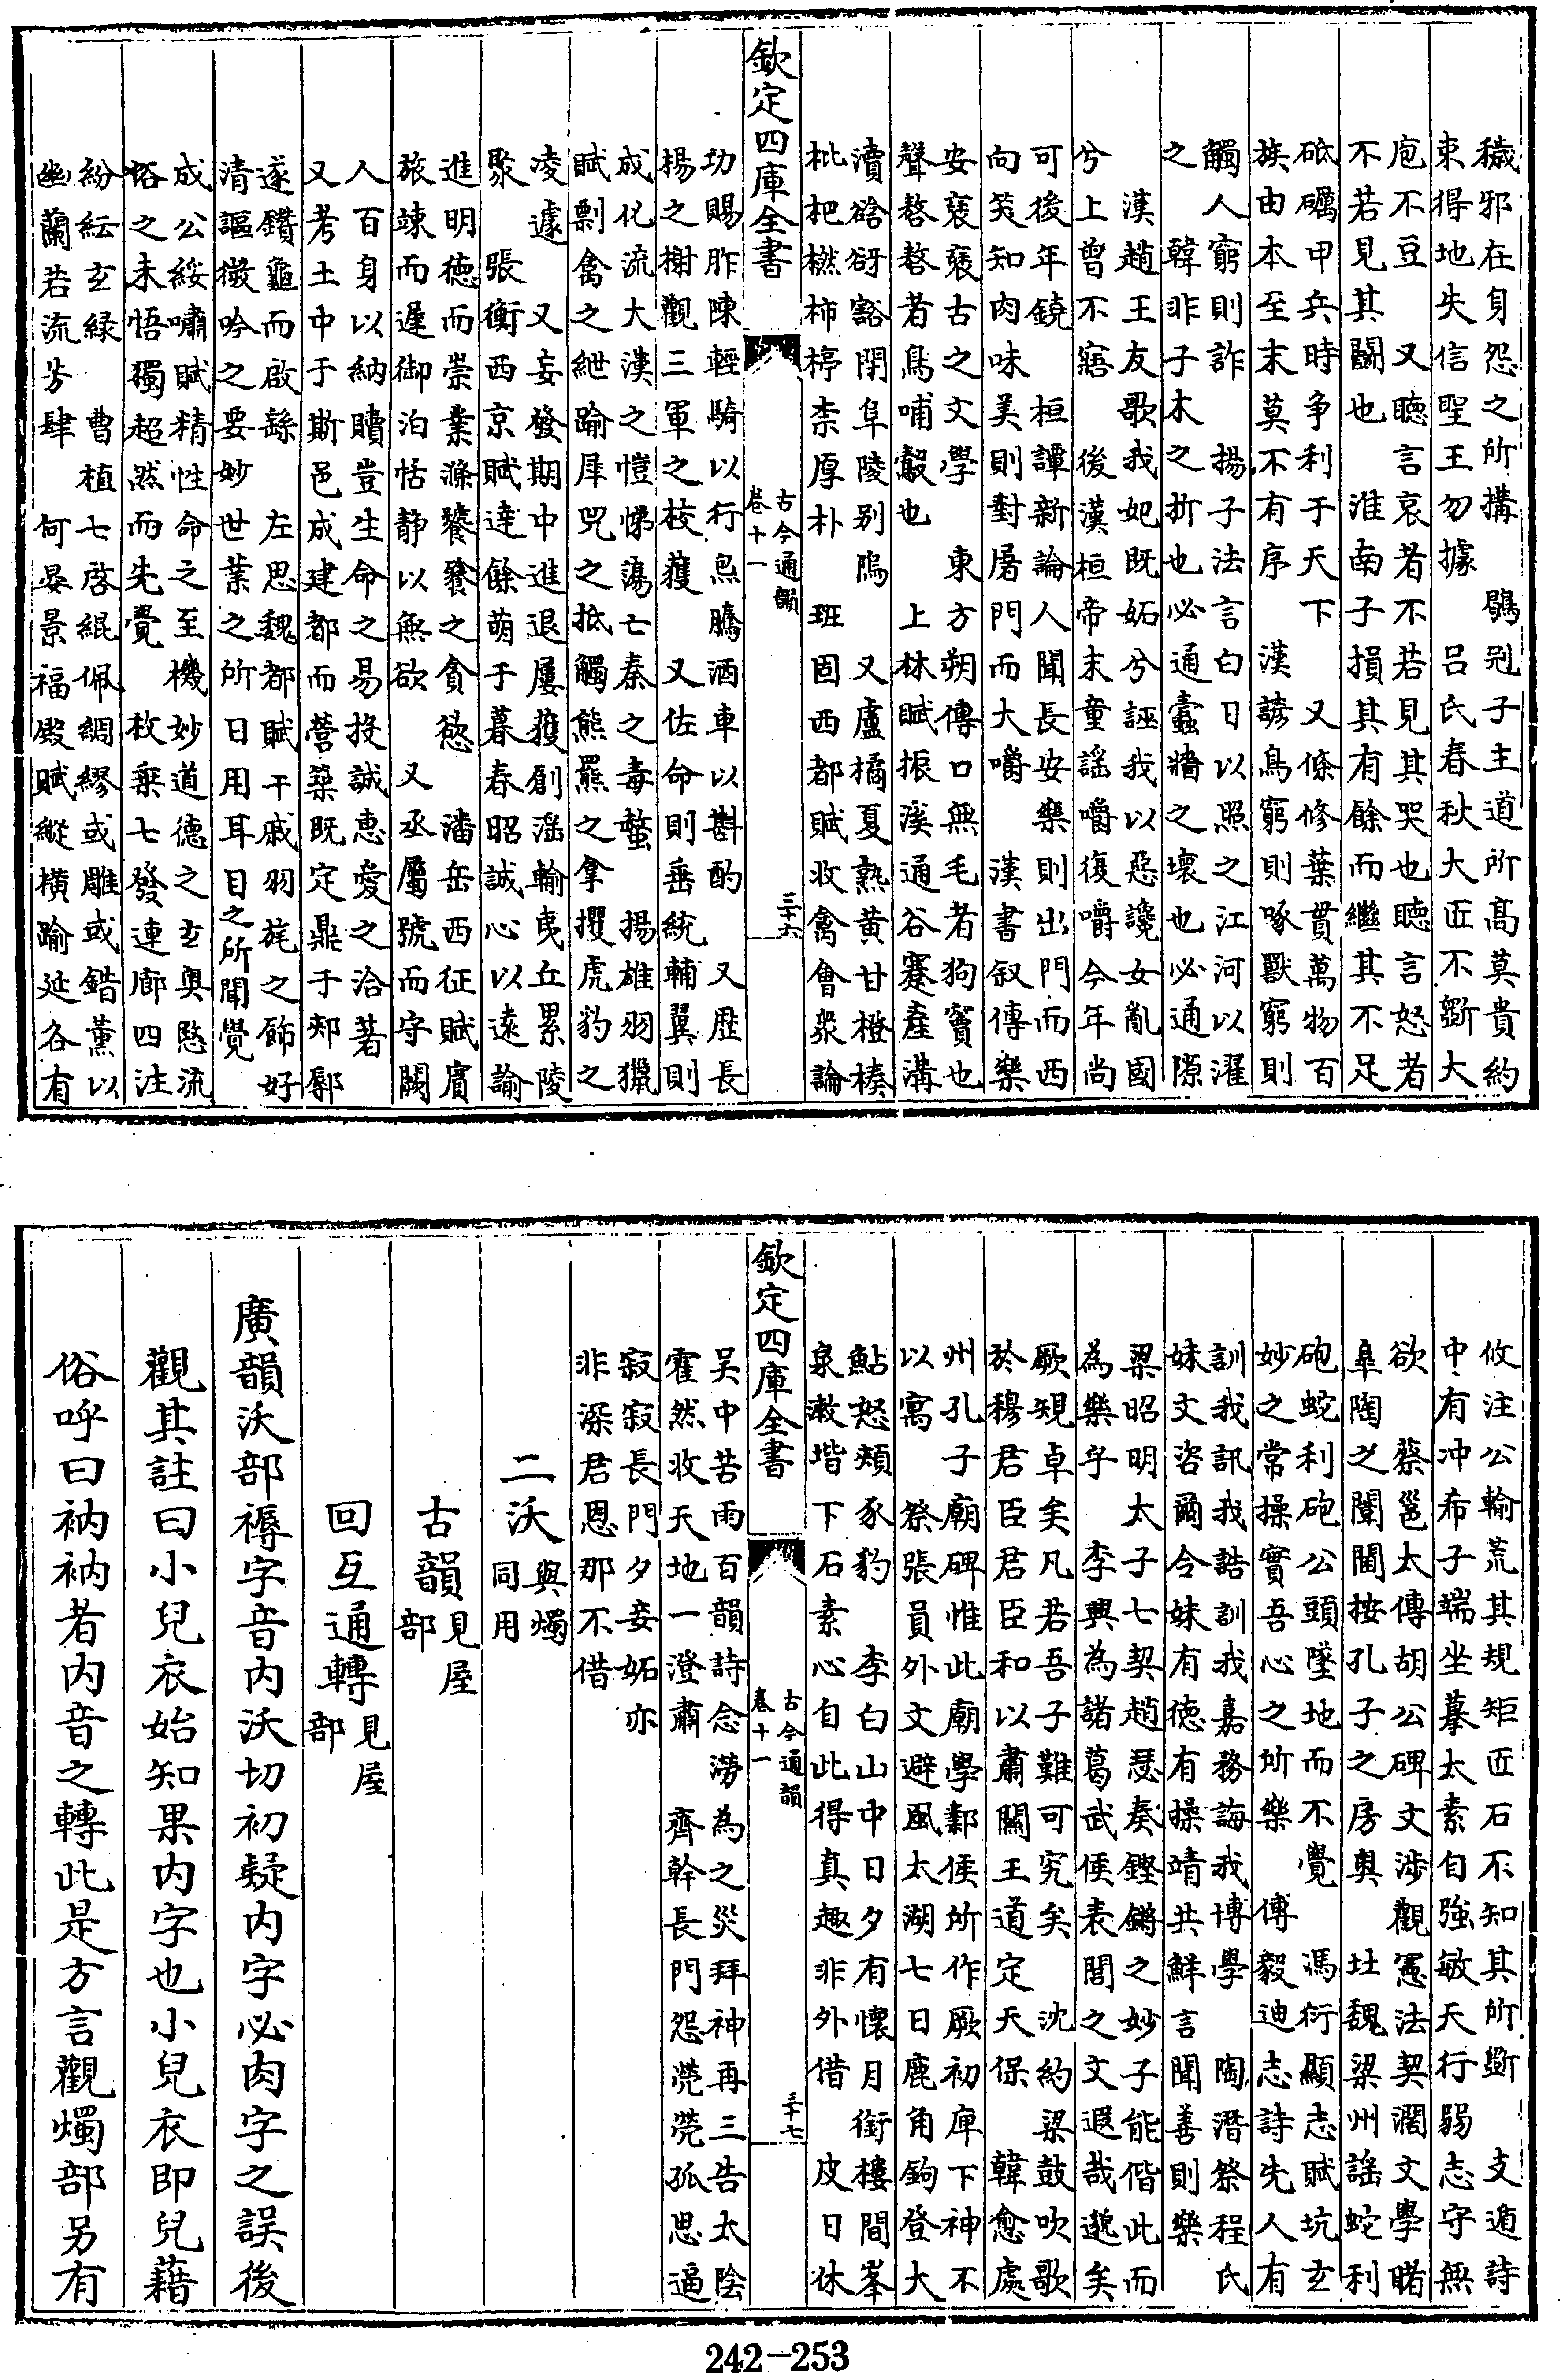 穢邪在身怨之所搆　鶡冠子主道所高莫貴約
束得地失信聖王勿據　呂氏春秋大匠不斵大
庖不豆　又聽言哀者不若見其哭也聽言怒者
不若見其鬭也　淮南子損其有餘而繼其不足
砥礪甲兵時争利于天下　又條修葉貫萬物百
族由本至末莫不有序　漢諺鳥窮則啄獸窮則
觸人窮則詐　揚子法言白日以照之江河以濯
之　韓非子木之折也必通蠹牆之壞也必通隙
漢趙王友歌我妃既妬兮誣我以惡讒女亂國
兮上曾不寤　後漢桓帝末童謡嚼復嚼今年尚
可後年鐃　桓譚新論人聞長安樂則出門而西
向笑知肉味美則對屠門而大嚼　漢書叙傳樂
安褎褎古之文學　東方朔傳口無毛者狗竇也
聲謷謷者鳥哺鷇也　上林賦振溪通谷蹇產溝
瀆谽谺豁閉阜陵别隝　又盧橘夏熟黃甘橙楱
枇杷橪柿楟柰厚朴　班固西都賦收禽會衆論
欽定四庫全書
古今通韻
卷十一
三十六
功賜胙陳輕騎以行炰騰酒車以斟酌　又歷長
楊之榭觀三軍之校獲　又佐命則垂統輔翼則
成化流大漢之愷悌蕩亡秦之毒螫　揚雄羽獵
賦剽禽之紲踰犀兕之抵觸熊羆之拏攫虎豹之
凌遽　又妄發期中進退屢獲創淫輪夷丘累陵
聚　張衡西京賦達餘萌于暮春昭誠心以遠諭
進明德而崇業滌饕餮之貪慾　潘岳西征賦賓
旅竦而遲御泊恬静以無欲　又丞屬號而守闕
人百身以納贖豈生命之易投誠惠愛之洽著
又考土中于斯邑成建都而營築既定鼎于郟鄏
遂鑽龜而啟繇　左思魏都賦干戚羽旄之飾好
清謳微吟之要妙世業之所日用耳目之所聞覺
成公綏嘯賦精性命之至機妙道德之玄奥愍流
俗之未悟獨超然而先覺　枚乘七發連廊四注
紛紜玄綠　曹植七啓緄佩綢繆或雕或錯薰以
幽蘭若流芳肆　何晏景福殿賦縱横踰延各有
攸注公輸荒其規矩匠石不知其所斵　支遁詩
中有冲希子端坐摹太素自強敏天行弱志守無
欲　蔡邕太傅胡公碑文渉觀憲法契濶文學睹
皐陶之闉闍按孔子之房奥　壯魏梁州謡蛇利
砲蛇利砲公頭墜地而不覺　馮衍顯志賦坑玄
妙之常操實吾心之所樂　傅毅迪志詩先人有
訓我訊我誥訓我嘉務誨我博學　陶潛祭程氏
妹文咨爾令妹有德有操靖共鮮言聞善則樂
梁昭明太子七契趙瑟奏鏗鏘之妙子能偕此而
為樂乎　李興為諸葛武侯表閭之文遐哉邈矣
厥規卓矣凡若吾子難可究矣　沈約梁鼓吹歌
於穆君臣君臣和以肅關王道定天保　韓愈處
州孔子廟碑惟此廟學鄴侯所作厥初庳下神不
以寓　祭張員外文避風太湖七日鹿角鉤登大
鮎怒頰豕豹　李白山中日夕有懷月銜樓間峯
泉漱堦下石素心自此得真趣非外借　皮日休
欽定四庫全書
古今通韻
卷十一
三十七
吴中苦雨百韻詩念澇為之災拜神再三告太陰
霍然收天地一澄肅　齊幹長門怨煢煢孤思逼
寂寂長門夕妾妬亦
非深君恩那不借
二沃與燭同用
古韻見屋部
回互通轉見屋部
廣韻沃部褥字音内沃切初疑内字必肉字之誤後
觀其註曰小兒衣始知果内字也小兒衣即兒藉
俗呼曰衲衲者内音之轉此是方言觀燭部另有
242-253